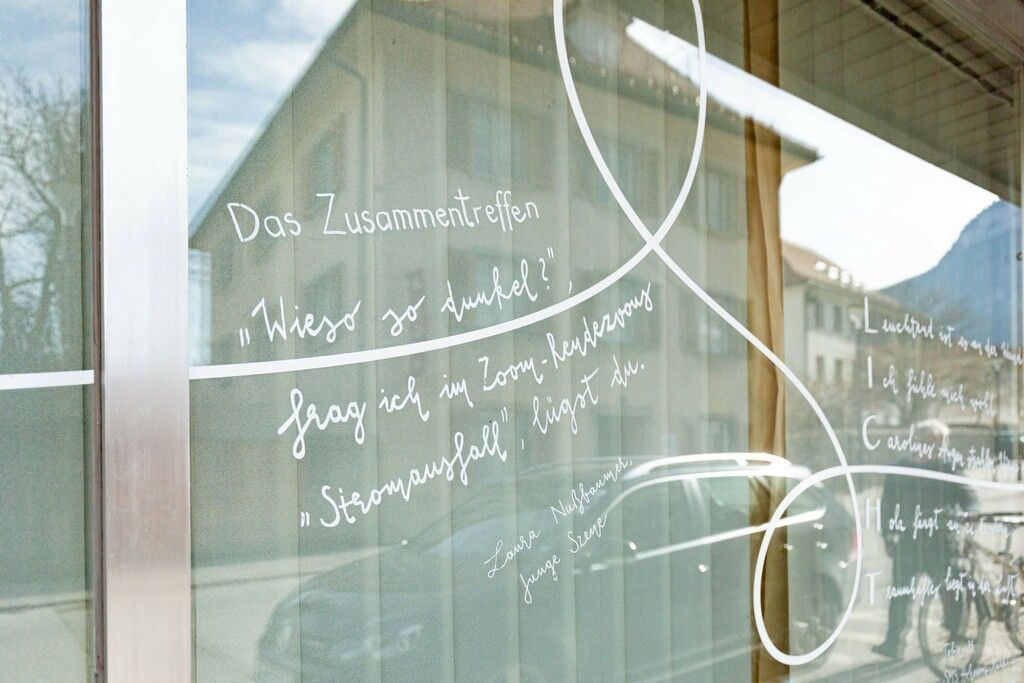 Das Zusammentreffen
„Wieso so dunkel?",
frag ich im Zoom-Rendezvous
„Stromausfall", lügst du.
Laura Nußbaumer,
junge Szene
Leuchtend ist es an der
Ich fühle mich wohl
Carolines Augen
Holz fängt an zu
Traumhafter liegt in der Luft